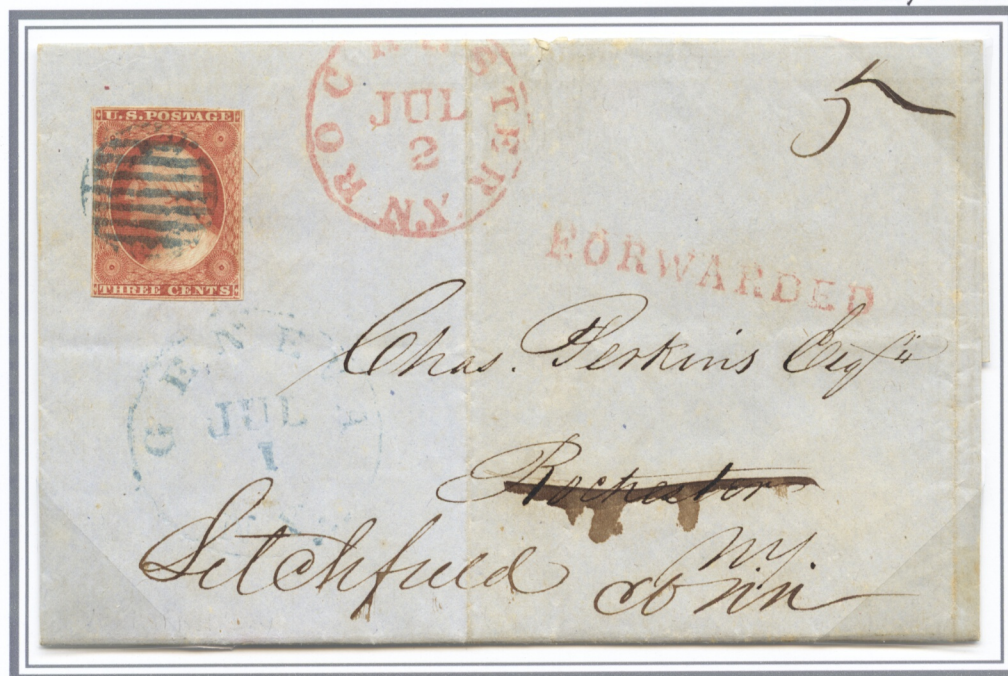 U.S. POSTAGE
THREE CENTS
ROCHESTER N.Y.
JUL
2
5
FORWARDED
GENEVA
JUL
1
Chas. Perkins Esqr
Rochester
NY
Litchfield Conn